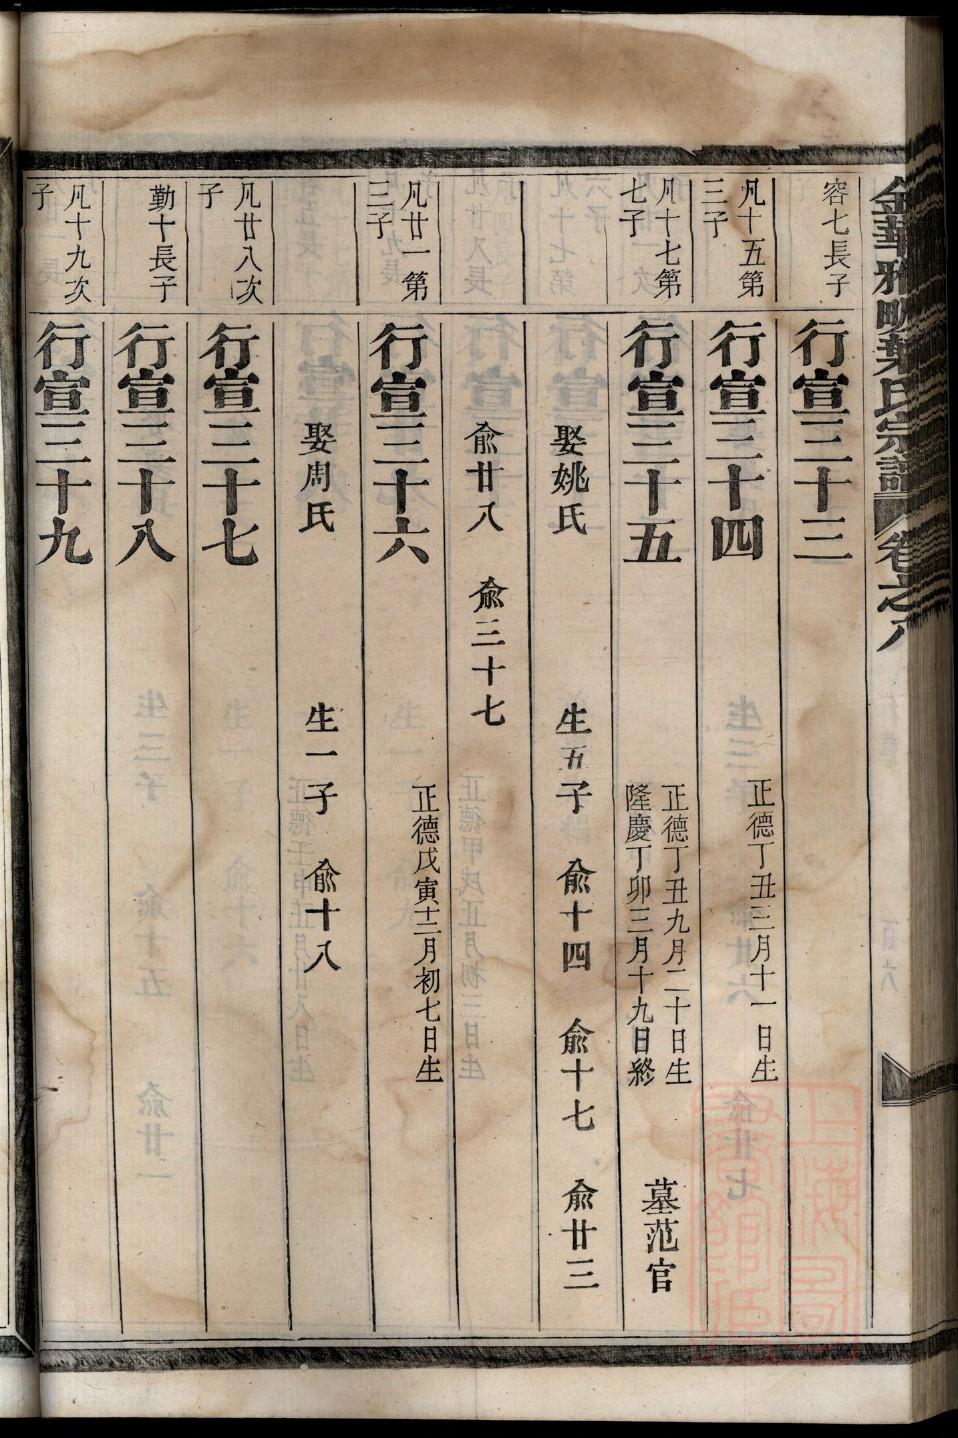 金華雅畈葉氏宗譜 卷之八
容七長子
行宣三十三
凡十五第
三子
行宣三十四
正德丁丑三月十一日生
凡十七第
七子
行宣三十五
正德丁丑九月二十日生
隆慶丁卯三月十九日終
墓范官
娶姚氏 生五子 俞十四 俞十七 俞廿三
俞廿八 俞三十七
凡廿一第
三子
行宣三十六
正德戊寅十二月初七日生
娶周氏 生一子 俞十八
凡廿八次
子
行宣三十七
勤十長子
行宣三十八
凡十九次
子
行宣三十九